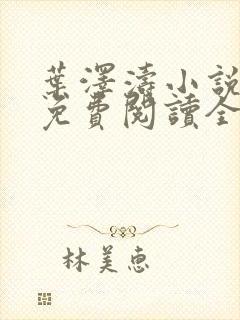 葉澤濤小說
免費閱讀全
林美惠